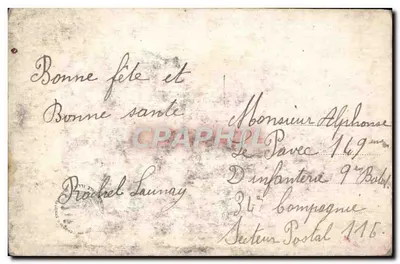 Bonne fête et
Bonne santé
Rachel Launay
Monsieur Alphonse
Le Pavec 149eme
D'infanterie 9me Batal
34e Compagnie
Secteur Postal 116.
CPARHPHIL